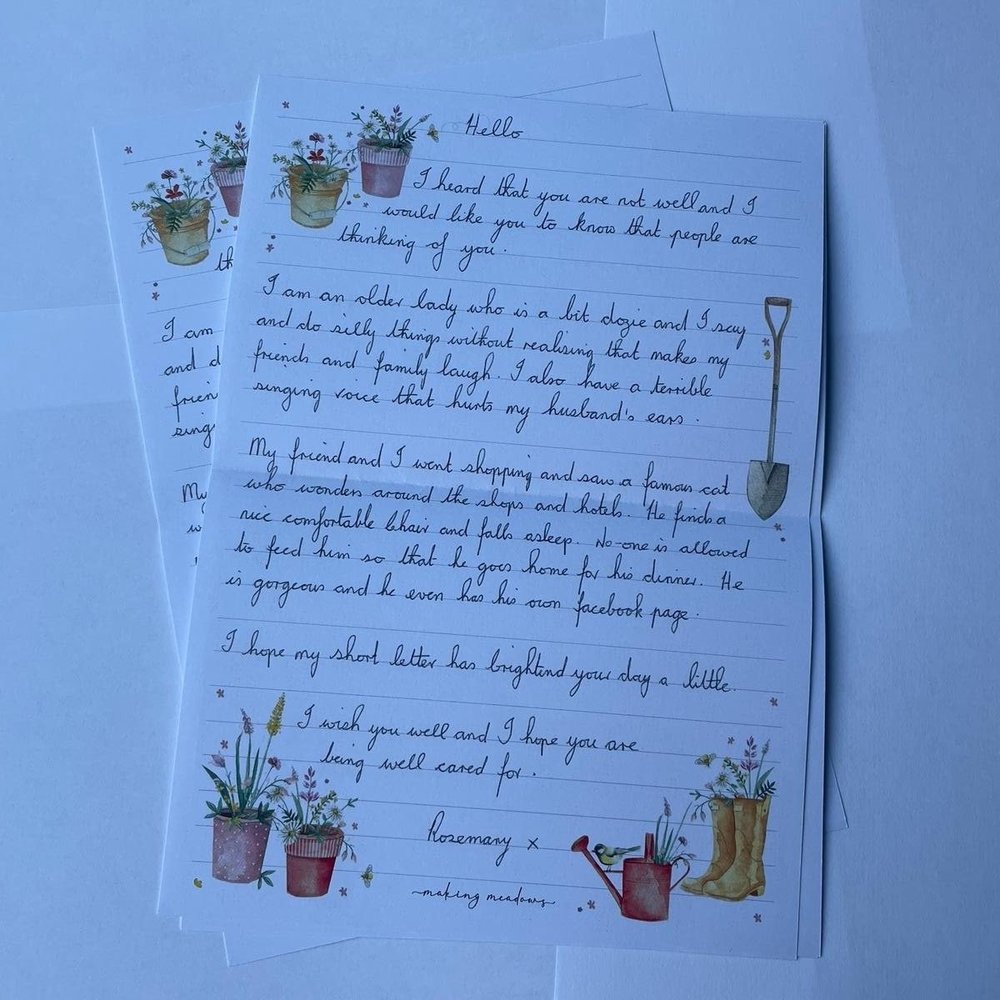 Hello
I heard that you are not well and I
would like you to know that people are
thinking of you.
I am an older lady who is a bit dozie and I say
and do silly things without realising that makes my
friends and family laugh. I also have a terrible
singing voice that hurts my husband's ears.
My friend and I went shopping and saw a famous cat
who wonders around the shops and hotels. He finds a
nice comfortable chair and falls asleep. No-one is allowed
to feed him so that he goes home for his dinner. He
is gorgeous and he even has his own facebook page.
I hope my short letter has brightend your day a little.
I wish you well and I hope you are
being well cared for.
Rosemary x
making meadows
th
I am
and d
frien
sing
My
w